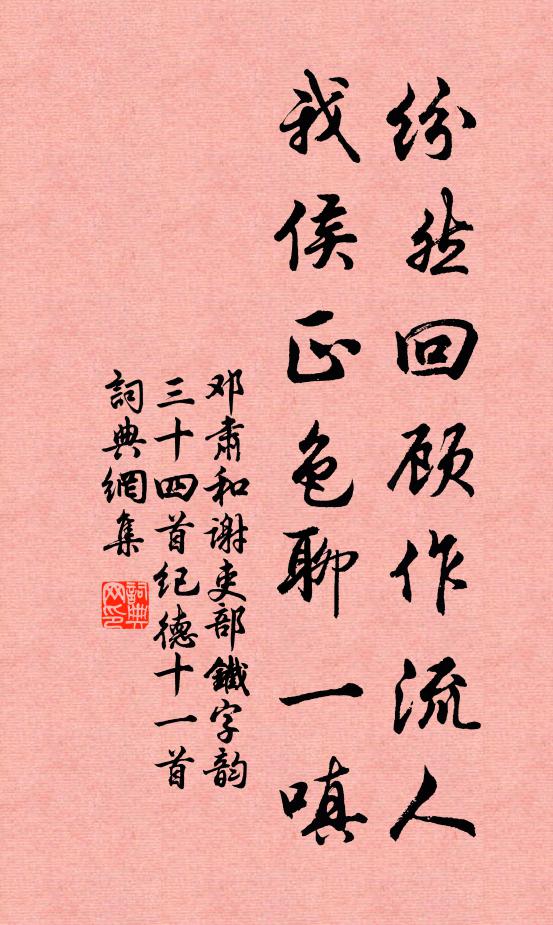 纷然回顾作流人
我侯正色聊一嗔
邓肃和谢吏部鐵字韵
三十四首纪德十一首
詞典網集
詞典网印